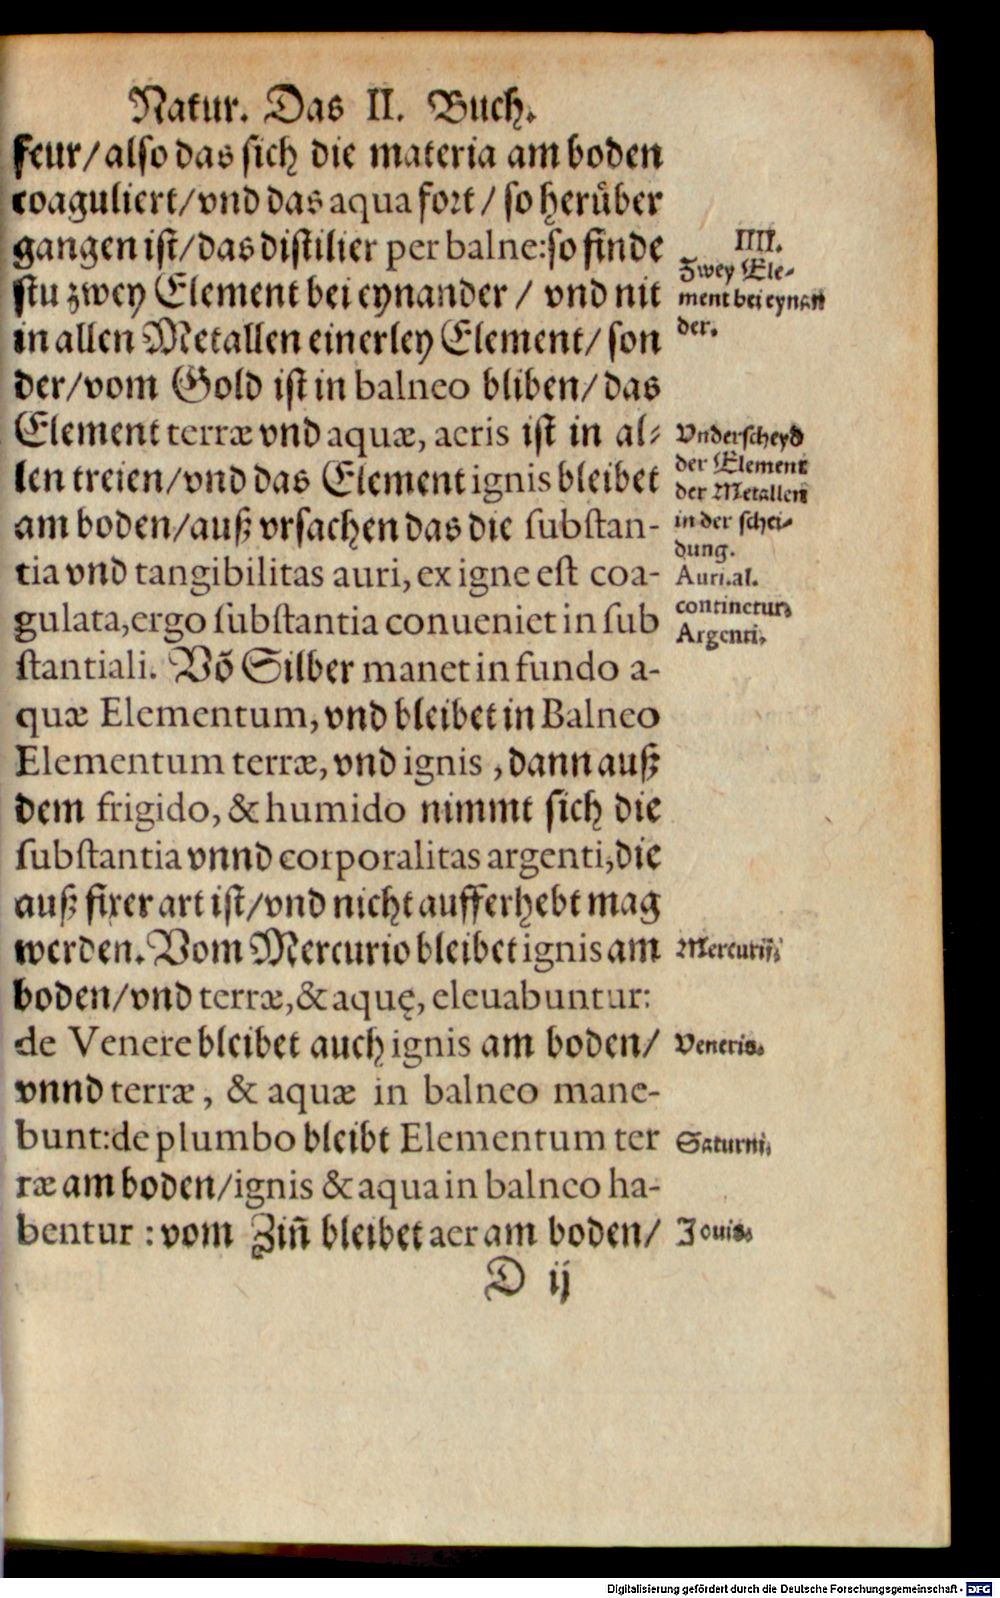 Natur. Das II. Buch.
feur/also das sich die materia am boden
coaguliert/vnd das aqua fort / so herüber
gangen ist/das distilier per balne:so finde
stu zwey Element bei eynander / vnd nit
in allen Metallen einerley Element/ son
der/vom Gold ist in balneo bliben/das
Element terræ vnd aquæ, aeris ist in al⸗
len treien/vnd das Element ignis bleibet
am boden/auß vrsachen das die substan-
tia vnd tangibilitas auri, ex igne est coa-
gulata,ergo substantia conueniet in sub
stantiali. Võ Silber manet in fundo a-
quæ Elementum, vnd bleibet in Balneo
Elementum terræ, vnd ignis , dann auß
dem frigido, & humido nimmt sich die
substantia vnnd corporalitas argenti,die
auß fixer art ist/vnd nicht aufferhebt mag
werden. Vom Mercurio bleibet ignis am
boden/vnd terræ,& aquę, eleuabuntur:
de Venere bleibet auch ignis am boden/
vnnd terræ, & aquæ in balneo mane-
bunt:de plumbo bleibt Elementum ter
ræ am boden/ignis & aqua in balneo ha-
bentur : vom Ziñ bleibet aer am boden/
D ij
IIII.
Zwey Ele⸗
ment bei eynañ
der.
Vnderscheyd
der Element
der Metallen
in der schei⸗
dung.
Auri.al.
continetur,
Argenti,
Mercurij,
Veneris.
Saturni,
Jouis.
Digitalisierung gefördert durch die Deutsche Forschungsgemeinschaft - DFG